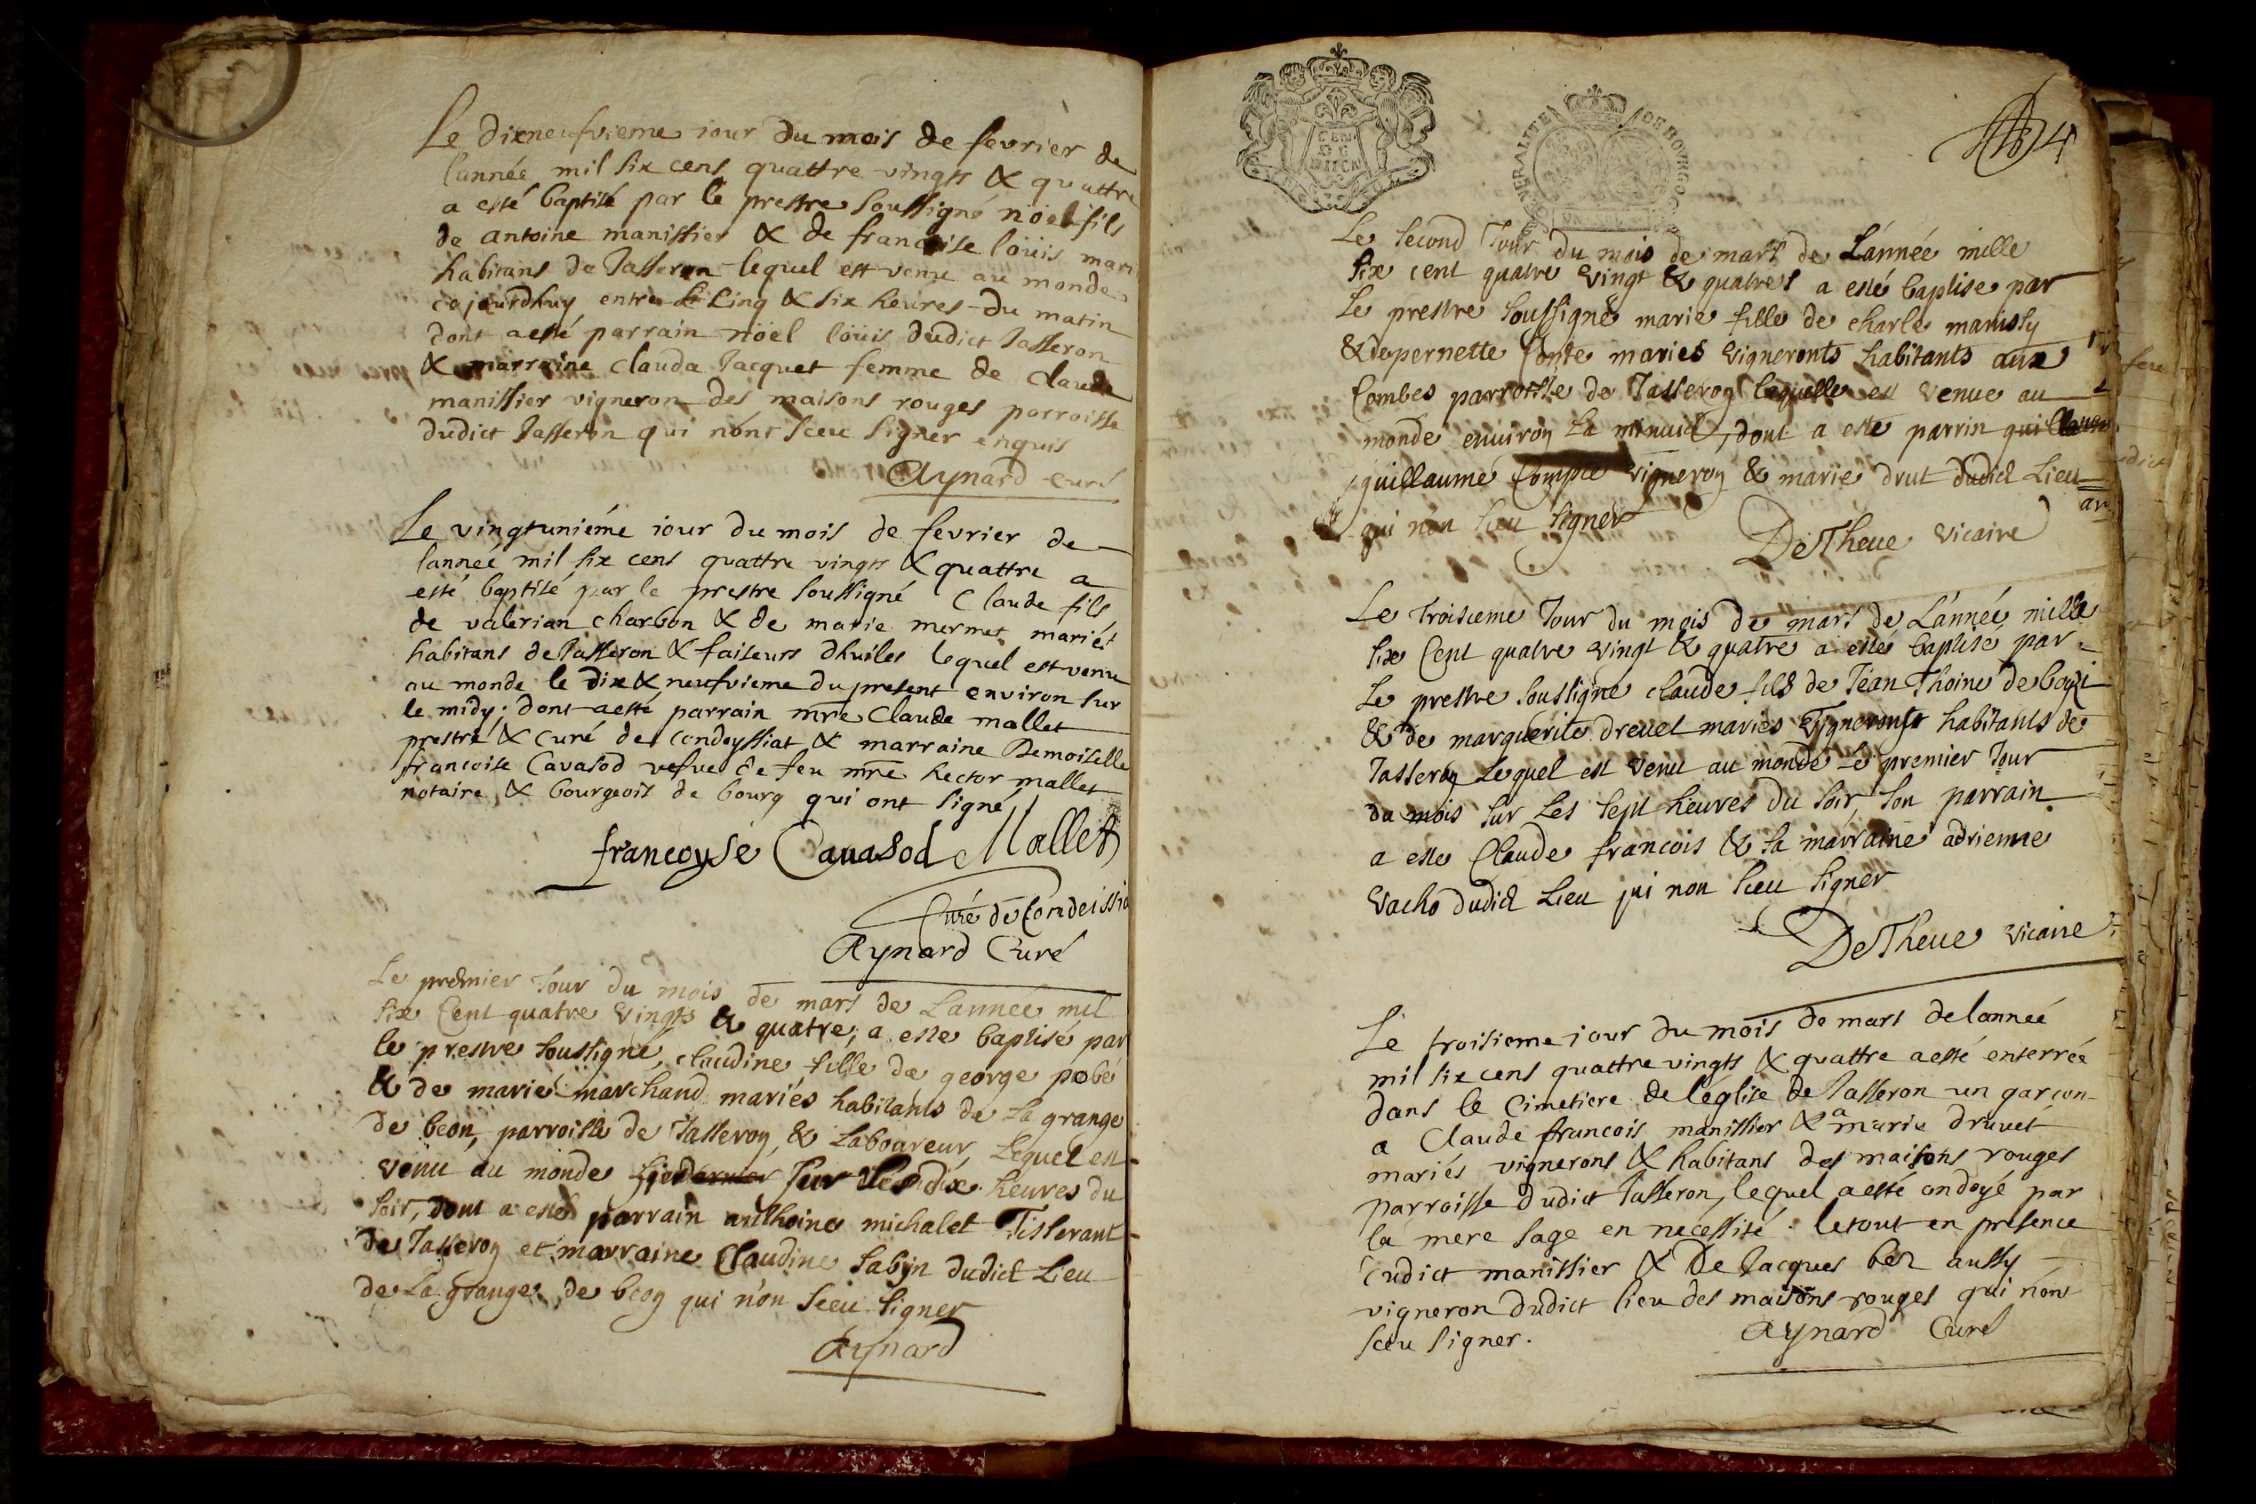 Le dixneufvieme iour du mois de fevrier de
lannée mil six cens quattre vingts & quattre
a esté baptisé par le prestre soussigné nöel fils
de antoine manissier & de francoise loüis mari
habitans de Jasseron lequel est venu au monde
cejourdhuy entre le cinq & six heures du matin
dont a esté parrain nöel loüis dudict Jasseron
& marraine clauda Jacquet femme de claude
manissier vigneron des maisons rouges parroisse
dudict Jasseron qui nônt sceu signer enquis
Aynard curé
Le vingtuniéme iour du mois de fevrier de
lannée mil six cens quattre vingts & quattre a
esté baptisé par le prestre soussigné Claude fils
de valerian charbon & de marie mermet mariés
habitans de Jasseron & faiseurs dhuiles lequel est venu
au monde le dix & neufvieme du present environ sur
le midy; dont a esté parrain mre Claude mallet
prestre & curé de condeyssiat & marraine Demoiselle
francoise Cavasod vefve de feu mre hector mallet
notaire & bourgeois de bourg qui ont signé
francoyse Cavasod Mallet
Curé de Condeissia
Aynard Curé
Le premier Jour du mois de mars de Lannee mil
six Cent quatre vingts & quatre, a este baptisé par
le prestre soussigné, claudine fille de george pobé
& de marie marchand mariés habitants de La grange
de beon, parroisse de Jasseron, & Laboureur, Lequel est
venu au monde sur les dix heures du
soir, dont a esté parrain anthoine michalet Tisserant
de Jasseron et marraine Claudine sabin dudict Lieu
de La grange de beon qui nón sceu signer
Aynard
GEN
4
Le second Jour du mois de mars de Lánnée mille
six cent quatre vingt & quatres a esté baptise par
Le prestre soussigné marie fille de charle manissy
& de pernette Conte mariés vigneronts habitants aux
Combes parroisse de Jasseron laquelle est venue au
monde environ La minuict, dont a esté parrin
guillaume Compte vigneron & marie drut dudict Lieu
qui nón sceu signer
DeTheue vicaire
Le troisieme Jour du mois de mars de Lánnée mille
six Cent quatre vingt & quatre a estés baptisé par
Le prestre soussigné claude fils de Jéan Thoine de
& de marguerite drevet mariés vigneronts habitants de
Jasseron Lequel est venu au monde Le premier Jour
du mois sur Les sept heures du soir, son parrain
a este Claude francois & sa marraine adrienne
vacho dudict Lieu qui non sceu signer
DeTheue vicaire
Le troisieme iour du mois de mars de lannée
mil six cens quattre vingts & quattre a esté enterrée
dans le Cimetiere de léglise de Jasseron un garcon
a Claude francois manissier & a marie druvet
mariés vignerons & habitans des maisons rouges
parroisse dudict Jasseron, lequel a esté ondoyé par
la mere sage en necessité. le tout en presence
dudict manissier & De Jacques bez aussy
vigneron dudict lieu des maisons rouges qui nónt
sceu signer.
Aynard Curé